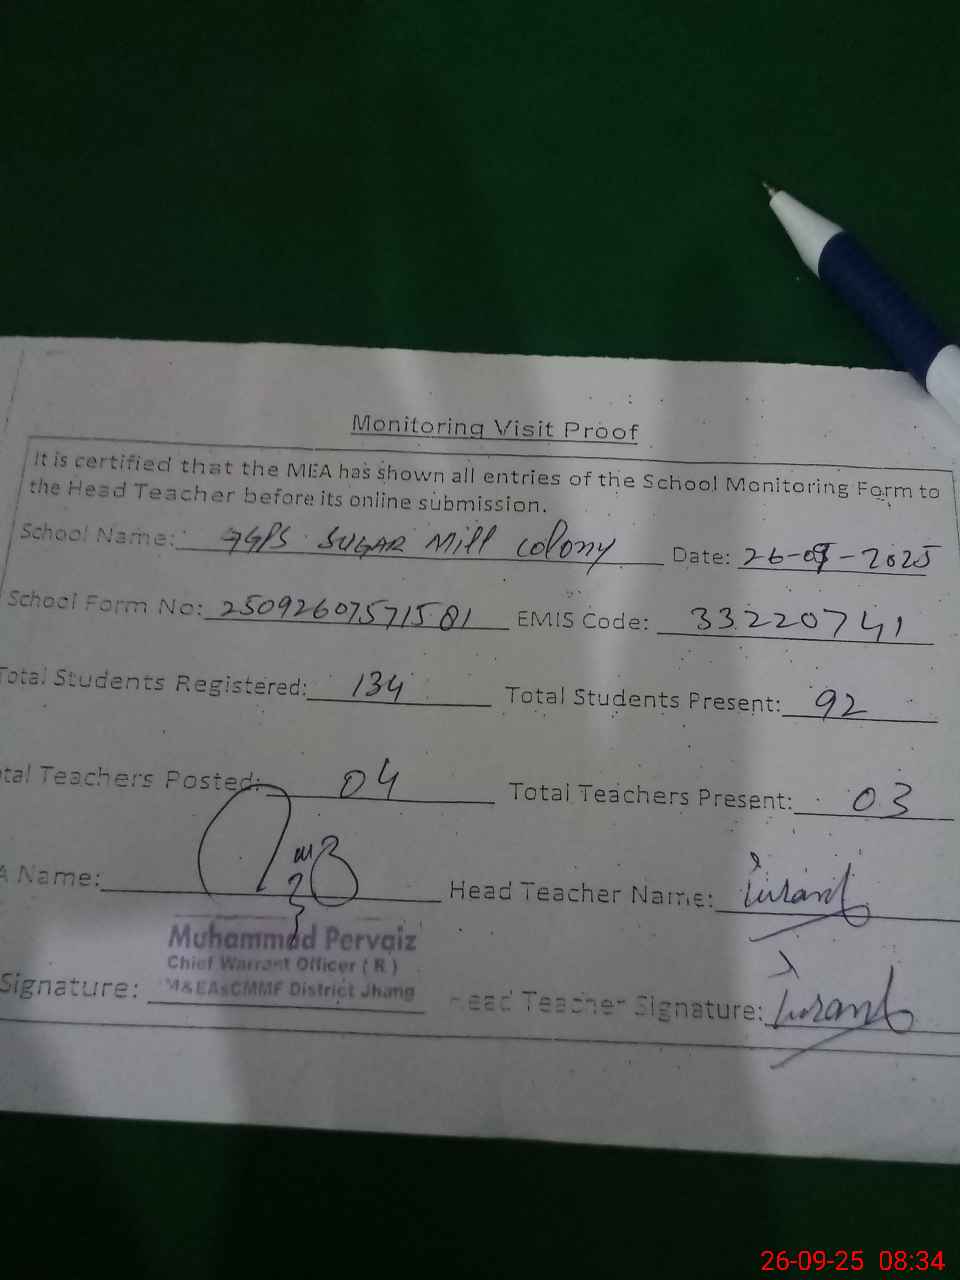 Monitoring Visit Proof
It is certified that the MEA has shown all entries of the School Monitoring Form to
the Head Teacher before its online submission.
School Name: GGPS SUGAR Mill Colony Date: 26-09-2025
School Form No: 25092607571581 EMIS Code: 33220741
Total Students Registered: 134 Total Students Present: 92
tal Teachers Posted: 04 Total Teachers Present: 03
A Name: Head Teacher Name:
Muhammad Pervaiz
Chief Warrant Officer (R)
M&EAsCMMF District Jhang
Signature: Head Teacher Signature:
26-09-25 08:34